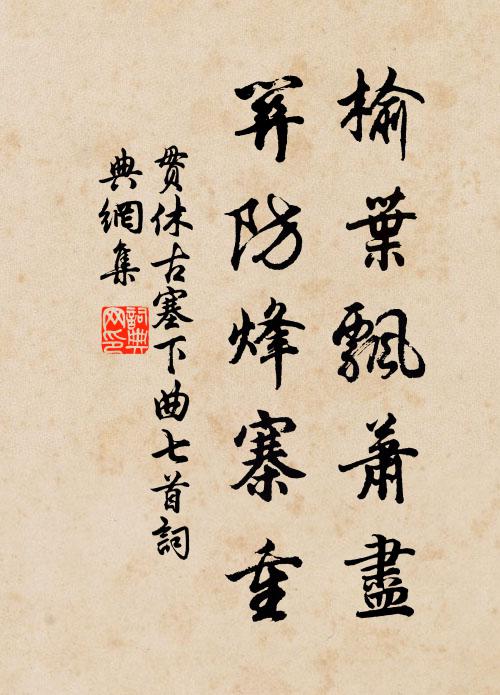 榆葉飄蕭盡
關防烽寨重
貫休古塞下曲七首詞
典網集
詞典
网印